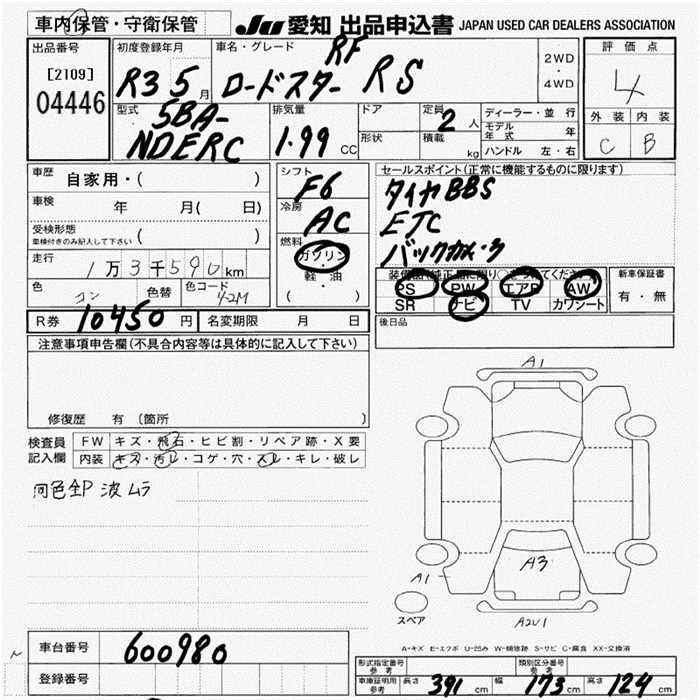 車内保管・守衛保管 JU 愛知 出品申込書 JAPAN USED CAR DEALERS ASSOCIATION
出品番号 初度登録年月 車名・グレード 評価点
[2109] R3 5月 ロードスター RF RS 2WD・4WD 4
04446 型式 排気量 ドア 定員 ディーラー・並行 外装 内装
5BA-NDERC 1.99 CC 形状 2人 モデル年式 年 C B
積載 kg ハンドル 左・右
車歴 自家用・( ) シフト F6 セールスポイント(正常に機能するものに限ります)
車検 年 月( 日) 冷房 AC タイヤBBS
受検形態 車検付きのみ記入して下さい ( ) ETC
燃料 ガソリン・軽油 ( ) バックカメラ
走行 1万3千590km
色 色替 色コード 42M PS PW エアB AW 新車保証書
SR ナビ TV カワシート 有・無
R券 10450円 名変期限 月 日 後日品
注意事項申告欄(不具合内容等は具体的に記入して下さい)
修復歴 有 (箇所 )
A1
検査員記入欄 FW キズ・飛石・ヒビ割・リペア跡・X要
内装 キズ・汚レ・コゲ・穴・スレ・キレ・破レ
同色全P 波 ムラ
A3
A1
スペア
A2U1
A-キズ E-エクボ U-凹み W-補修跡 S-サビ C-腐食 XX-交換済
車台番号 600980
登録番号
形式指定番号 参考 類別区分番号 参考
車庫証明用 参考 長さ 391cm 幅 173cm 高さ 124cm